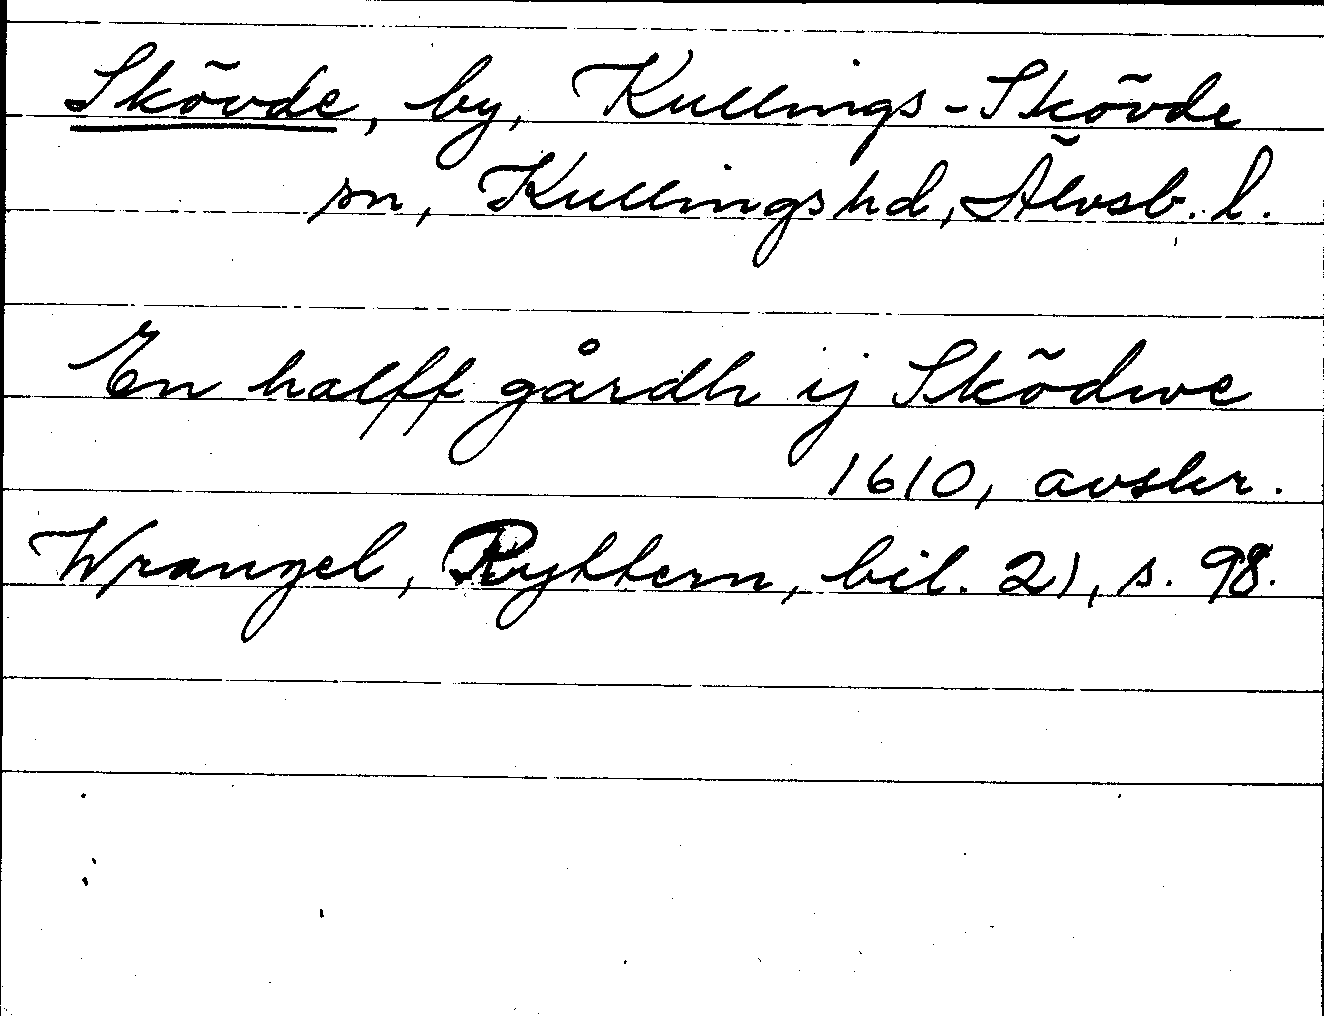 Skövde, by, Kullings-Skövde
sn, Kullings hd, Älvsb. l.
En halff gårdh ij Sködwe
1610, avskr.
Wrangel, Ryttern, bil. 21, s. 98.